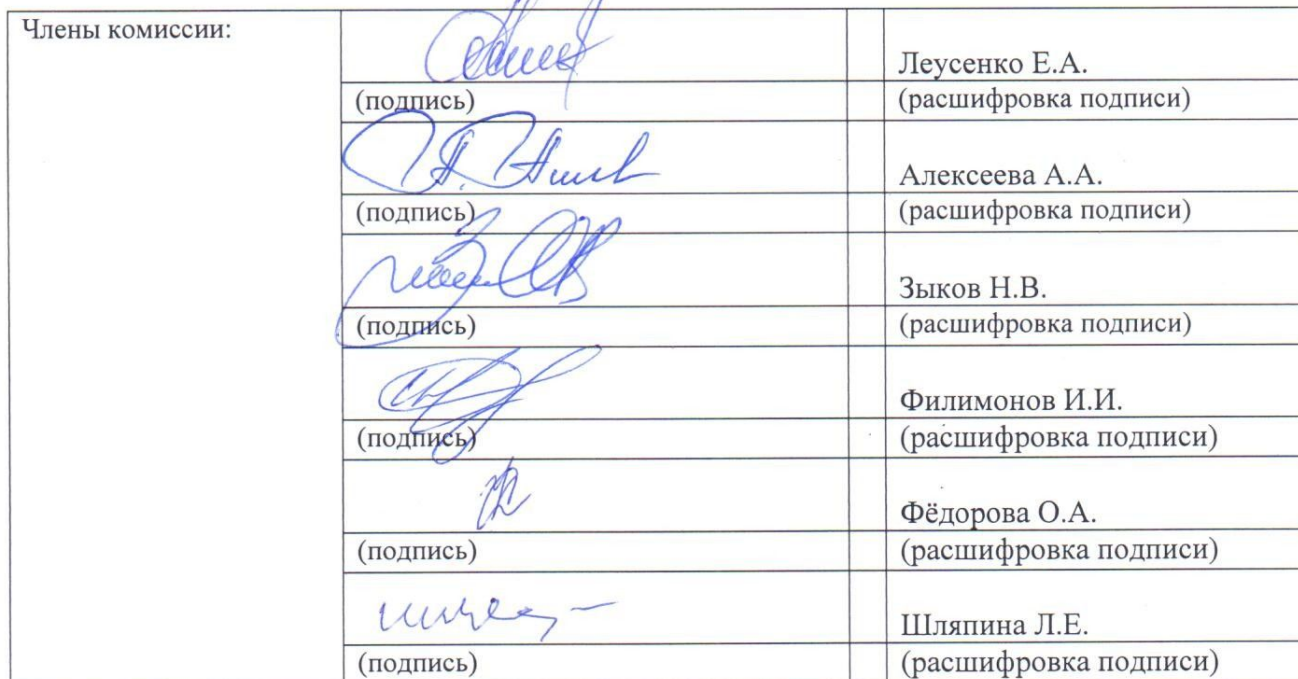 Члены комиссии:
Леусенко Е.А.
(подпись) (расшифровка подписи)
Алексеева А.А.
(подпись) (расшифровка подписи)
Зыков Н.В.
(подпись) (расшифровка подписи)
Филимонов И.И.
(подпись) (расшифровка подписи)
Фёдорова О.А.
(подпись) (расшифровка подписи)
Шляпина Л.Е.
(подпись) (расшифровка подписи)